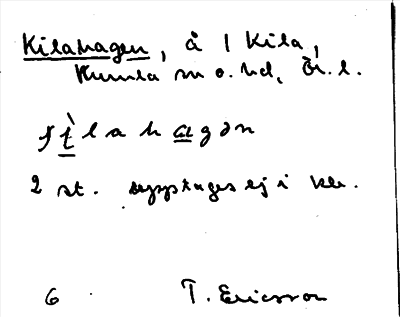 Kilahagen, å 1 Kila,
Kumla sn o. hd, Ör. l.
ʃìlahagən
2 st. upptages ej i kle.
6 T. Ericsson